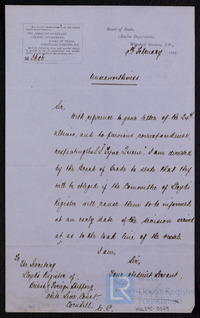 Board of Trade,
Marine Department,
Whitehall Gardens, S.W.,
February
Unseaworthiness
Sir
With reference to your letter of the 20th
ultimo, and to previous correspondence
respecting the S.S. "Tyne Queen" I am directed
by the Board of Trade to state that they
will be obliged if the Committee of Lloyds
Register will cause them to be informed
at an early date of the decision arrived
at as to the load line of the vessel.
I am
Sir,
Your obedient Servant
The Secretary
Lloyds Register of
British & Foreign Shipping
White Lion Court
Cornhill
E.C.